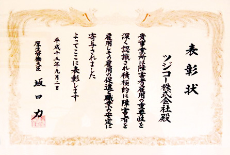 表彰状
ツジコー株式会社殿
貴事業所は障害者雇用の重要性を
深く認識され積極的に障害者を
雇用しその雇用の促進と職業の安定に
寄与されました
よってここに表彰します
平成十五年九月二日
厚生労働大臣 坂口力